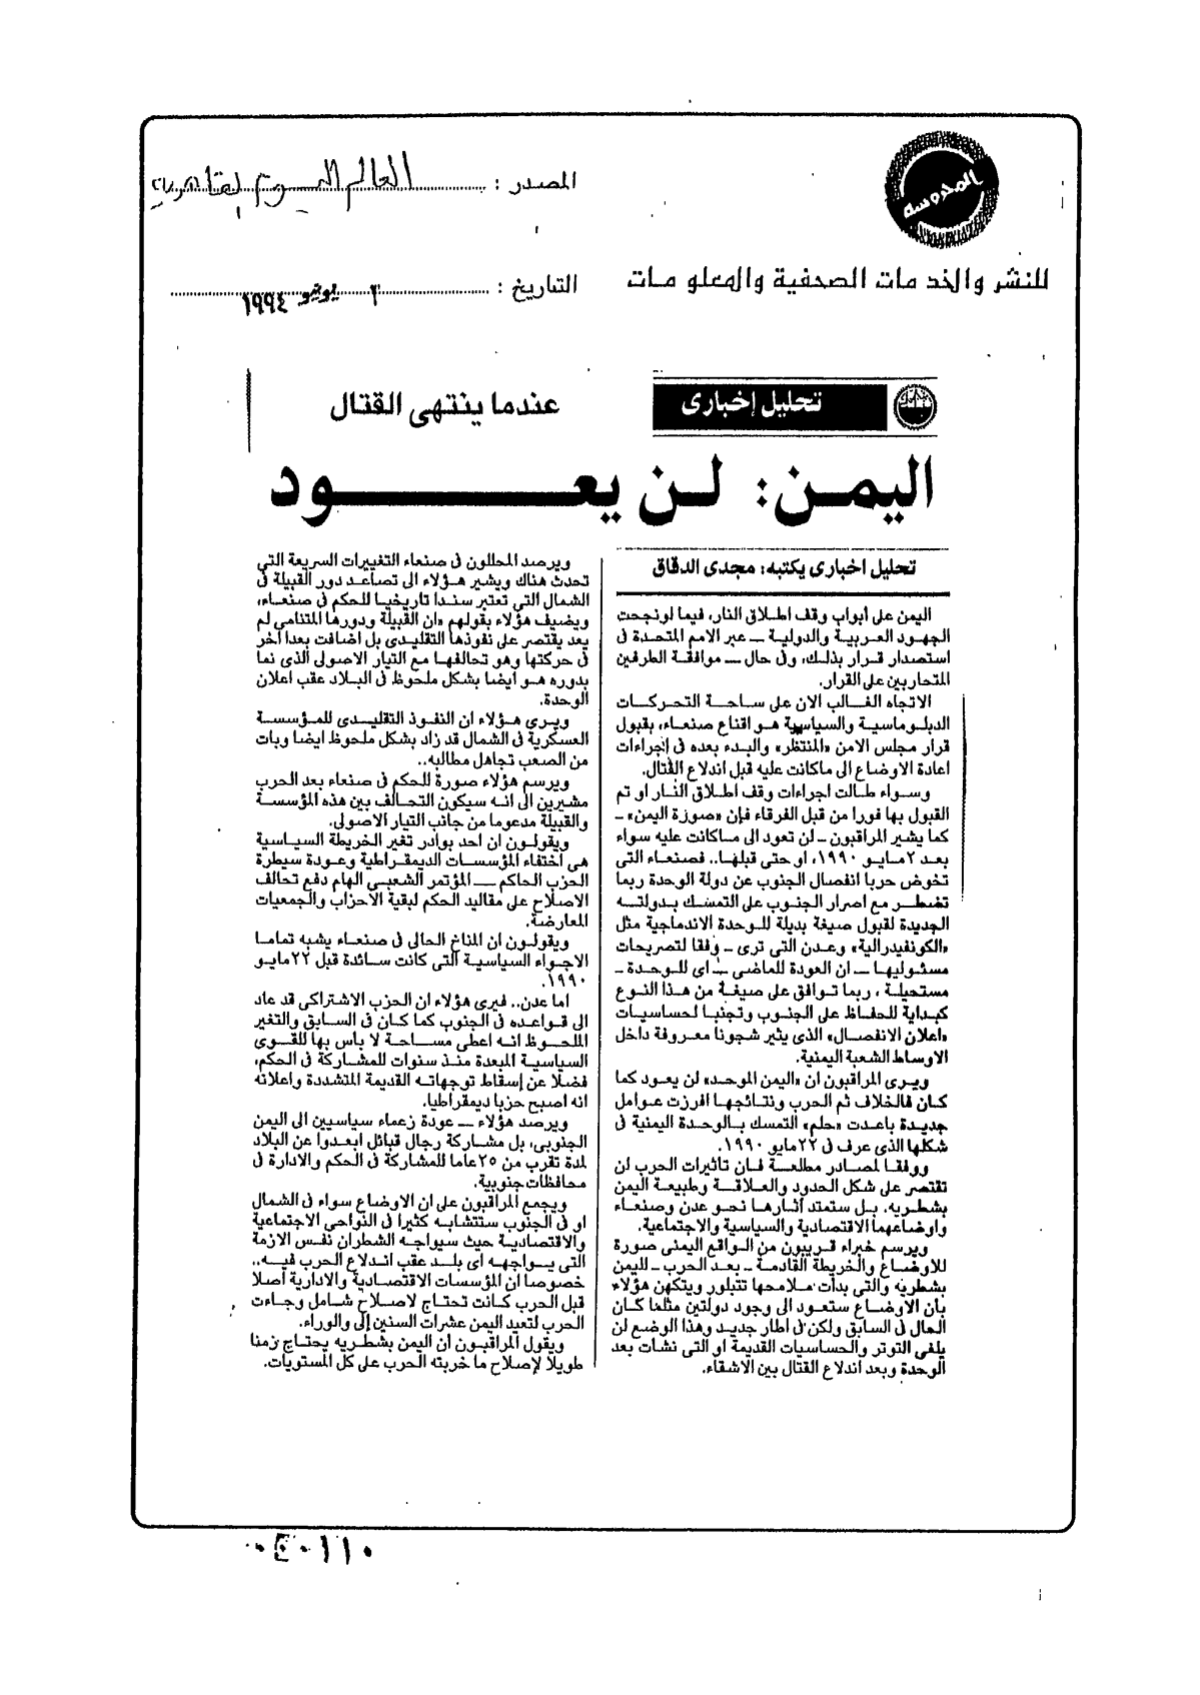 المحروسة
المصدر : العالم اليوم القاهرية
للنشر والخدمات الصحفية والمعلومات
التاريخ : ٢ يونيو ١٩٩٤
تحليل إخبارى
عندما ينتهى القتال
اليمن: لن يعود
تحليل اخبارى يكتبه: مجدى الدقاق
اليمن على أبواب وقف اطلاق النار، فيما لونجحت
الجهود العربية والدولية ــ عبر الامم المتحدة فى
استصدار قرار بذلك، وفى حال ــ موافقة الطرفين
المتحاربين على القرار.
الاتجاه الغالب الان على ساحة التحركات
الدبلوماسية والسياسية هو اقناع صنعاء، بقبول
قرار مجلس الامن «المنتظر» والبدء بعده فى إجراءات
اعادة الاوضاع الى ماكانت عليه قبل اندلاع القتال.
وسواء طالت اجراءات وقف اطلاق النار او تم
القبول بها فورا من قبل الفرقاء فإن «صورة اليمن» ــ
كما يشير المراقبون ــ لن تعود الى ماكانت عليه سواء
بعد ٢ مايو ١٩٩٠، او حتى قبلها.. فصنعاء التى
تخوض حربا انفصال الجنوب عن دولة الوحدة ربما
تضطر مع اصرار الجنوب على التمسك بدولته
الجديدة لقبول صيغة بديلة للوحدة الاندماجية مثل
«الكونفيدرالية» وعدن التى ترى ــ وفقا لتصريحات
مسئوليها ــ ان العودة للماضى ــ اى للوحدة ــ
مستحيلة ، ربما توافق على صيغة من هذا النوع
كبداية للحفاظ على الجنوب وتجنبا لحساسيات
«اعلان الانفصال» الذى يثير شجونا معروفة داخل
الاوساط الشعبة اليمنية.
ويرى المراقبون ان «اليمن الموحد» لن يعود كما
كان فالخلاف ثم الحرب ونتائجها افرزت عوامل
جديدة باعدت «حلم» التمسك بالوحدة اليمنية فى
شكلها الذى عرف فى ٢٢ مايو ١٩٩٠.
ووفقا لمصادر مطلعة فان تاثيرات الحرب لن
تقتصر على شكل الحدود والعلاقة وطبيعة اليمن
بشطريه. بل ستمتد آثارها نحو عدن وصنعاء
واوضاعهما الاقتصادية والسياسية والاجتماعية.
ويرسم خبراء قريبون من الواقع اليمنى صورة
للاوضاع والخريطة القادمة ــ بعد الحرب ــ لليمن
بشطريه والتى بدأت ملامحها تتبلور ويتكهن هؤلاء
بأن الاوضاع ستعود الى وجود دولتين مثلما كان
الحال فى السابق ولكن فى اطار جديد وهذا الوضع لن
يلغى التوتر والحساسيات القديمة او التى نشات بعد
الوحدة وبعد اندلاع القتال بين الاشقاء.
ويرصد المحللون فى صنعاء التغييرات السريعة التى
تحدث هناك ويشير هؤلاء الى تصاعد دور القبيلة فى
الشمال التى تعتبر سندا تاريخيا للحكم فى صنعاء،
ويضيف هؤلاء بقولهم «ان القبيلة ودورها المتنامى لم
يعد يقتصر على نفوذها التقليدى بل اضافت بعدا آخر
فى حركتها وهو تحالفها مع التيار الاصولى الذى نما
بدوره هو ايضا بشكل ملحوظ فى البلاد عقب اعلان
الوحدة.
ويرى هؤلاء ان النفوذ التقليدى للمؤسسة
العسكرية فى الشمال قد زاد بشكل ملحوظ ايضا وبات
من الصعب تجاهل مطالبه..
ويرسم هؤلاء صورة للحكم فى صنعاء بعد الحرب
مشيرين الى انه سيكون التحالف بين هذه المؤسسة
والقبيلة مدعوما من جانب التيار الاصولى.
ويقولون ان احد بوادر تغير الخريطة السياسية
هى اختفاء المؤسسات الديمقراطية وعودة سيطرة
الحزب الحاكم ــ المؤتمر الشعبى الهام دفع تحالف
الاصلاح على مقاليد الحكم لبقية الاحزاب والجمعيات
المعارضة.
ويقولون ان المناخ الحالى فى صنعاء يشبه تماما
الاجواء السياسية التى كانت سائدة قبل ٢٢ مايو
١٩٩٠.
اما عدن.. فيرى هؤلاء ان الحزب الاشتراكى قد عاد
الى قواعده فى الجنوب كما كان فى السابق والتغير
الملحوظ انه اعطى مساحة لا باس بها للقوى
السياسية المبعدة منذ سنوات للمشاركة فى الحكم،
فضلا عن إسقاط توجهاته القديمة المتشددة واعلانه
انه اصبح حزبا ديمقراطيا.
ويرصد هؤلاء ــ عودة زعماء سياسيين الى اليمن
الجنوبى، بل مشاركة رجال قبائل ابعدوا عن البلاد
لمدة تقرب من ٢٥ عاما للمشاركة فى الحكم والادارة فى
محافظات جنوبية.
ويجمع المراقبون على ان الاوضاع سواء فى الشمال
او فى الجنوب ستتشابه كثيرا فى النواحى الاجتماعية
والاقتصادية حيث سيواجه الشطران نفس الازمة
التى يواجهه اى بلد عقب اندلاع الحرب فيه..
خصوصا ان المؤسسات الاقتصادية والادارية أصلا
قبل الحرب كانت تحتاج لاصلاح شامل وجاءت
الحرب لتعيد اليمن عشرات السنين إلى والوراء.
ويقول المراقبون ان اليمن بشطريه يحتاج زمنا
طويلا لإصلاح ما خربته الحرب على كل المستويات.